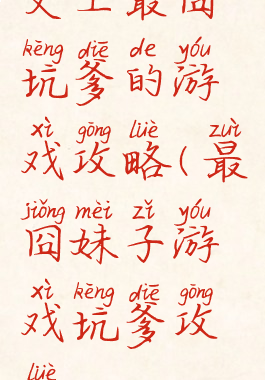 史上最囧
kēng diē de yóu
坑爹的游
xì gōng lüè zuì
戏攻略(最
jiǒng mèi zǐ yóu
囧妹子游
xì kēng diē gōng
戏坑爹攻
lüè